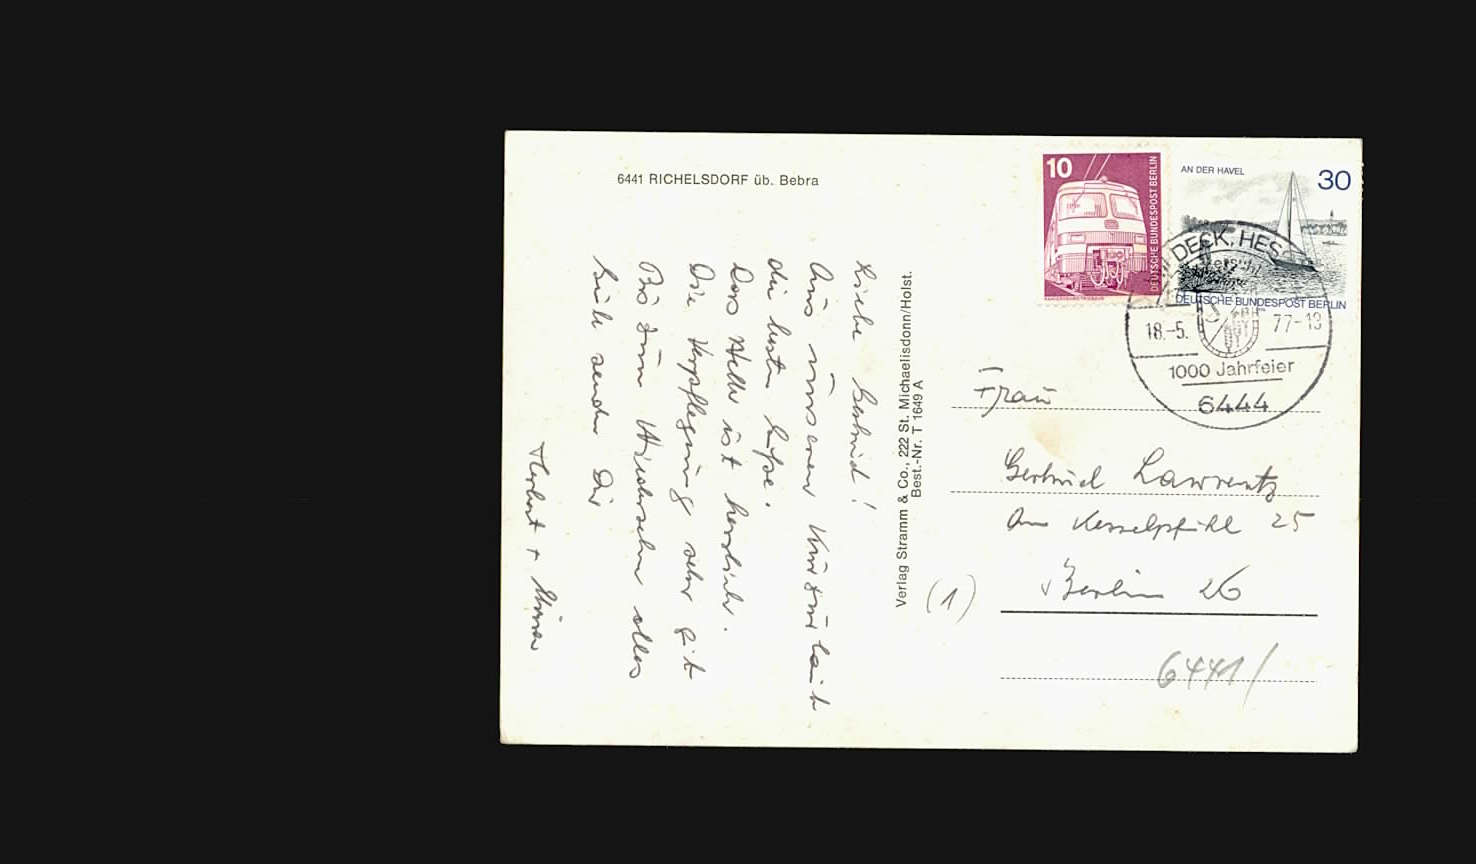 6441 RICHELSDORF üb. Bebra
Liebe Gertrud!
Aus unserem Kurzurlaub
die besten Grüße.
Das Wetter ist herrlich.
Die Verpflegung sehr gut
Bis zum Wiedersehn alles
Gute senden Dir
Herbert +
Verlag Stramm & Co., 222 St. Michaelisdonn/Holst.
Best.-Nr. T 1649 A
10
DEUTSCHE BUNDESPOST BERLIN
AN DER HAVEL
30
DEUTSCHE BUNDESPOST BERLIN
DECK, HESS
18.-5.
77-13
1000 Jahrfeier
6444
Frau
Gertrud Lawrentz
Am Kesselpfuhl 25
Berlin 26
(1)
6441/